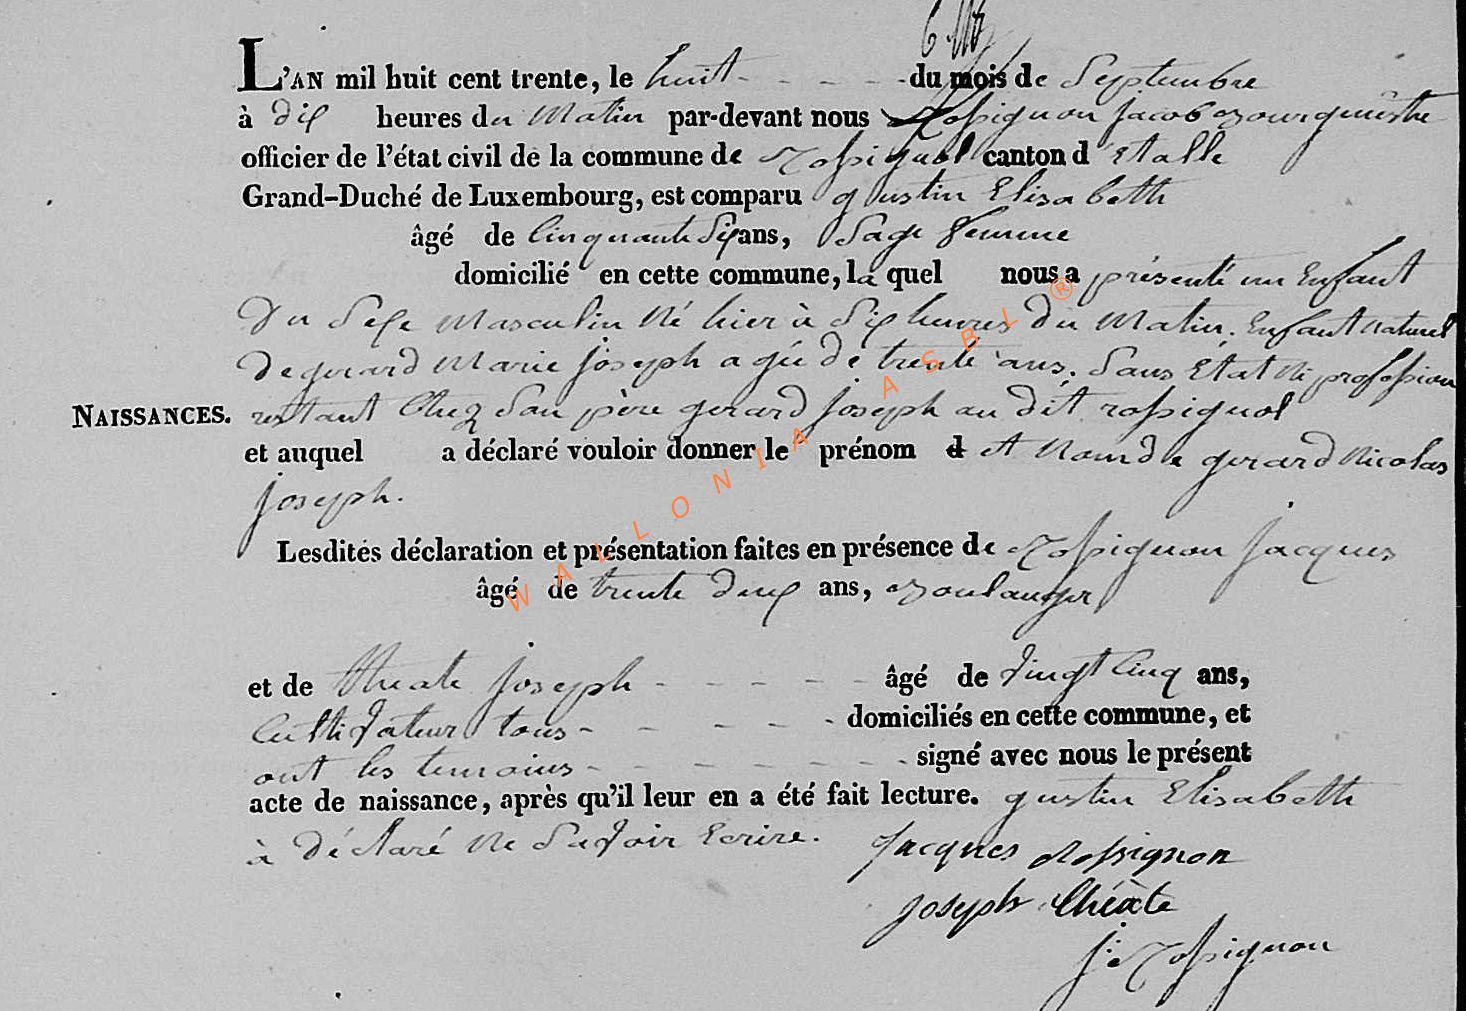 L'AN mil huit cent trente, le huit - - - - - du mois de Septembre
à dix heures du Matin par-devant nous Rossignon jacob Bourgumestre
officier de l'état civil de la commune de Rossignol canton d'Etalle
Grand-Duché de Luxembourg, est comparu gustin Elisabeth
âgé de Cinquante Six ans, Sage femme
domicilié en cette commune, la quel nous a présenté un Enfant
Du Sexe Masculin Né hier à Six heures du Matin. Enfant Naturel
De gerard Marie joseph agée de trente ans. Sans Etat Ni profession
NAISSANCES. restant Chez Son père gerard joseph au dit rossignol
et auquel a déclaré vouloir donner le prénom d et Nom de gerard Nicolas
joseph.
Lesdites déclaration et présentation faites en présence de Rossignon jacques
âgé de trente deux ans, Boulanger
et de theate joseph - - - - - âgé de Vingt Cinq ans,
Cultivateur tous - - - - - domiciliés en cette commune, et
ont les temoins - - - - - - - - signé avec nous le présent
acte de naissance, après qu'il leur en a été fait lecture. gustin Elisabeth
à déclaré Ne Savoir Ecrire. Jacques Rossignon
joseph théate
j: Rossignon
WALLONIA ASBL ®